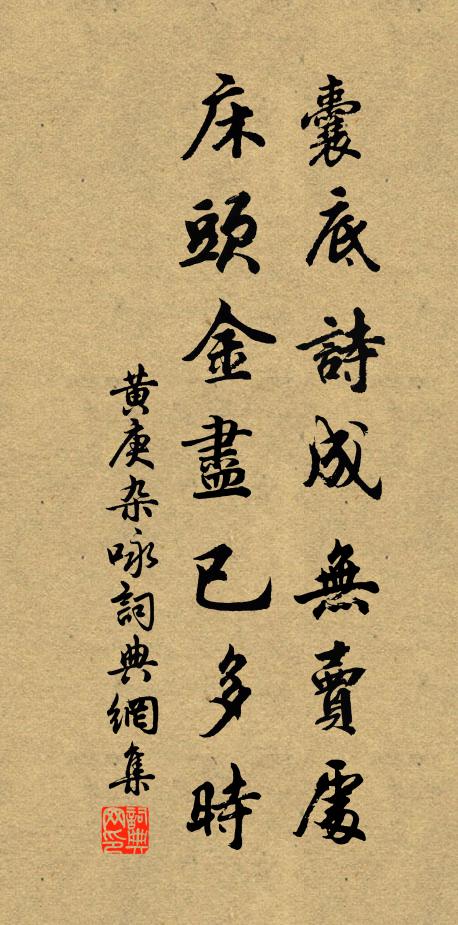 囊底詩成無賣處
床頭金盡已多時
黃庚杂咏詞典網集
詞典网印